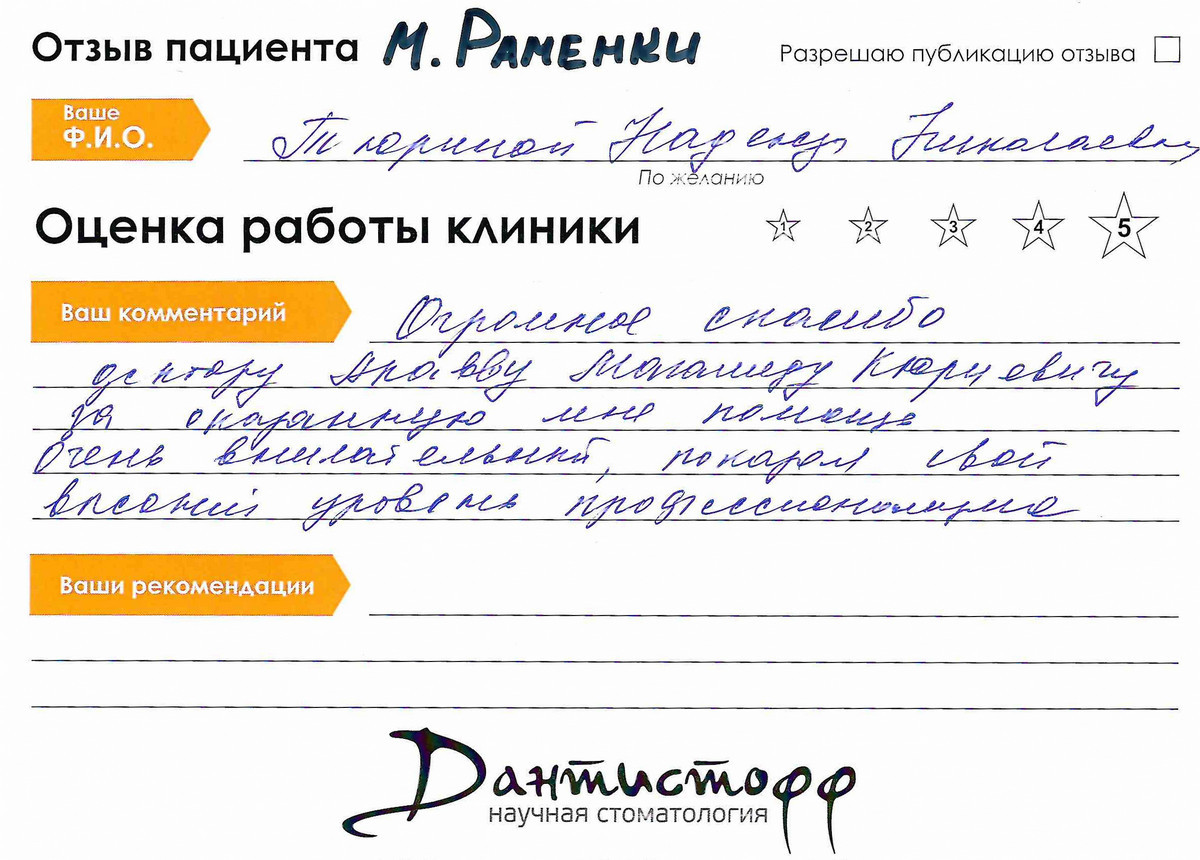 Отзыв пациента М. Раменки Разрешаю публикацию отзыва
Ваше
Ф.И.О.
Надежды Николаевны
По желанию
Оценка работы клиники 1 2 3 4 5
Ваш комментарий Огромное спасибо
доктору Магомеду Кюриевичу
за оказанную мне помощь
Очень внимательный, показал свой
высокий уровень профессионализма
Ваши рекомендации
Дантистофф
научная стоматология